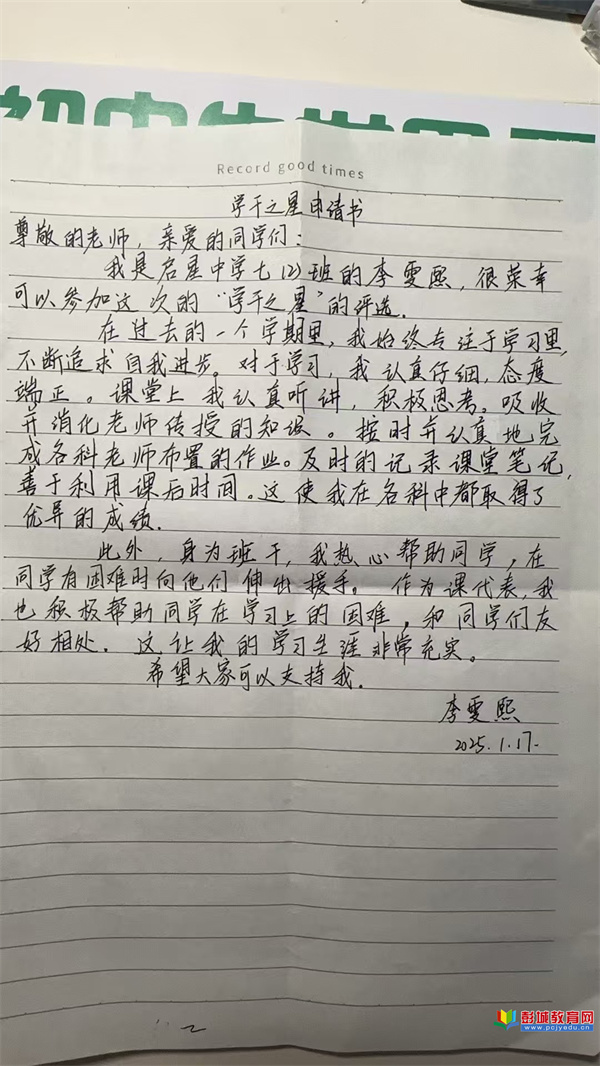 Record good times
学干之星申请书
尊敬的老师，亲爱的同学们：
我是启星中学七(2)班的李雯熙，很荣幸
可以参加这次的“学干之星”的评选.
在过去的一个学期里，我始终专注于学习里，
不断追求自我进步。对于学习，我认真仔细，态度
端正。课堂上我认真听讲，积极思考。吸收
并消化老师传授的知识。按时并认真地完
成各科老师布置的作业。及时的记录课堂笔记，
善于利用课后时间。这使我在各科中都取得了
优异的成绩.
此外，身为班干，我热心帮助同学，在
同学有困难时向他们伸出援手。作为课代表，我
也积极帮助同学在学习上的困难，和同学们友
好相处.这让我的学习生涯非常充实。
希望大家可以支持我.
李雯熙
2025.1.17.
彭城教育网
www.pcjyadu.cn